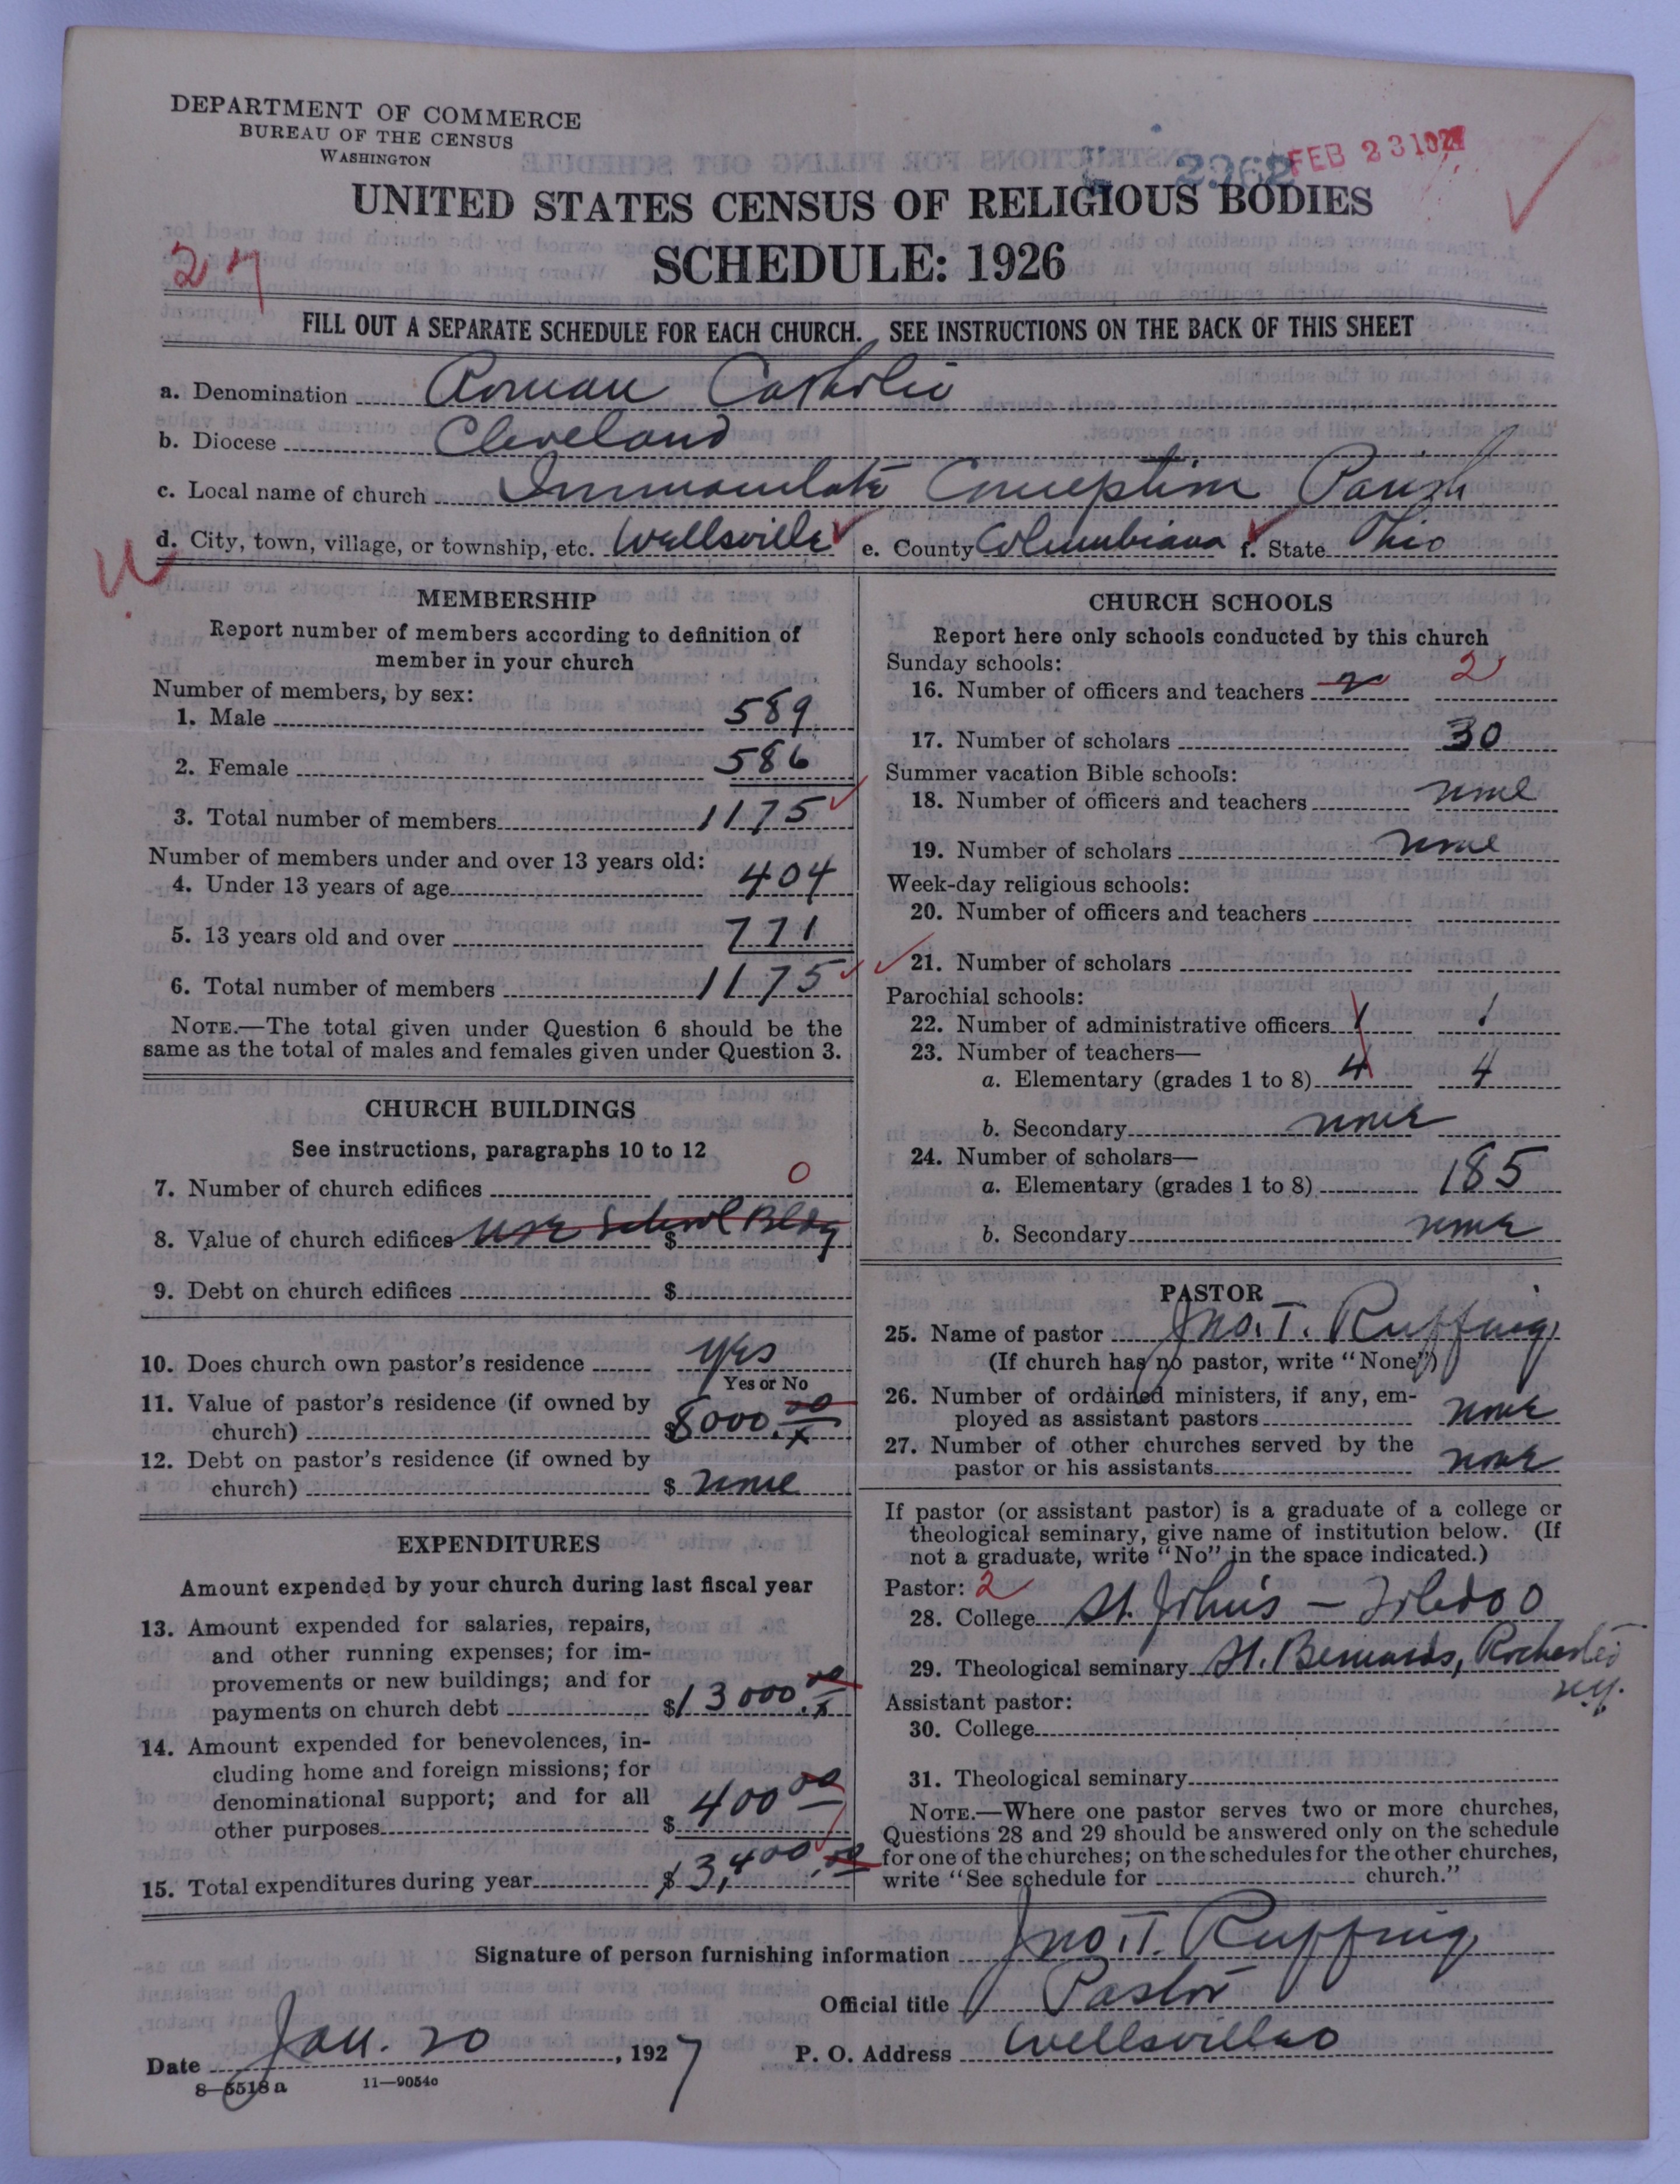 DEPARTMENT OF COMMERCE
BUREAU OF THE CENSUS
WASHINGTON
2962 FEB 23 1927
UNITED STATES CENSUS OF RELIGIOUS BODIES
SCHEDULE: 1926
27
FILL OUT A SEPARATE SCHEDULE FOR EACH CHURCH. SEE INSTRUCTIONS ON THE BACK OF THIS SHEET
a. Denomination Roman Catholic
b. Diocese Cleveland
c. Local name of church Immaculate Conception Parish
d. City, town, village, or township, etc. Wellsville e. County Columbiana f. State Ohio
W
MEMBERSHIP
Report number of members according to definition of
member in your church
Number of members, by sex:
1. Male 589
2. Female 586
3. Total number of members 1175
Number of members under and over 13 years old:
4. Under 13 years of age 404
5. 13 years old and over 771
6. Total number of members 1175
NOTE.—The total given under Question 6 should be the
same as the total of males and females given under Question 3.
CHURCH BUILDINGS
See instructions, paragraphs 10 to 12
7. Number of church edifices 0
8. Value of church edifices use School Bldg $
9. Debt on church edifices $
10. Does church own pastor's residence yes
Yes or No
11. Value of pastor's residence (if owned by
church) $8000.00/x
12. Debt on pastor's residence (if owned by
church) $ none
EXPENDITURES
Amount expended by your church during last fiscal year
13. Amount expended for salaries, repairs,
and other running expenses; for im-
provements or new buildings; and for
payments on church debt $13000.00/x
14. Amount expended for benevolences, in-
cluding home and foreign missions; for
denominational support; and for all
other purposes $400 00
15. Total expenditures during year $13,400.00
CHURCH SCHOOLS
Report here only schools conducted by this church
Sunday schools:
16. Number of officers and teachers 2 2
17. Number of scholars 30
Summer vacation Bible schools:
18. Number of officers and teachers none
19. Number of scholars none
Week-day religious schools:
20. Number of officers and teachers
21. Number of scholars
Parochial schools:
22. Number of administrative officers 1 1
23. Number of teachers—
a. Elementary (grades 1 to 8) 4 4
b. Secondary none
24. Number of scholars—
a. Elementary (grades 1 to 8) 185
b. Secondary none
PASTOR
25. Name of pastor Jno. T. Ruffing
(If church has no pastor, write "None")
26. Number of ordained ministers, if any, em-
ployed as assistant pastors none
27. Number of other churches served by the
pastor or his assistants none
If pastor (or assistant pastor) is a graduate of a college or
theological seminary, give name of institution below. (If
not a graduate, write "No" in the space indicated.)
Pastor: 2
28. College St. John's - Toledo O
29. Theological seminary St. Bernards, Rochester
N.Y.
Assistant pastor:
30. College
31. Theological seminary
NOTE.—Where one pastor serves two or more churches,
Questions 28 and 29 should be answered only on the schedule
for one of the churches; on the schedules for the other churches,
write "See schedule for church."
Signature of person furnishing information Jno. T. Ruffing
Official title Pastor
Date Jan. 20, 1927 P. O. Address Wellsville O
8—5518a 11—9054c